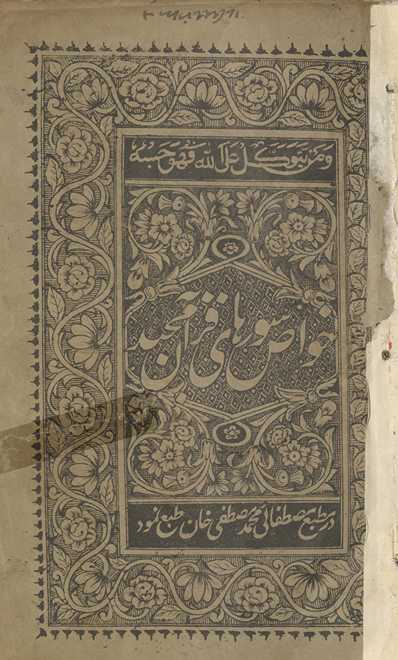 ومن یتوکل علی الله فهو حسبه
خواص سورهای قرآن مجید
در مطبع مصطفائی محمد مصطفی خان طبع نمود